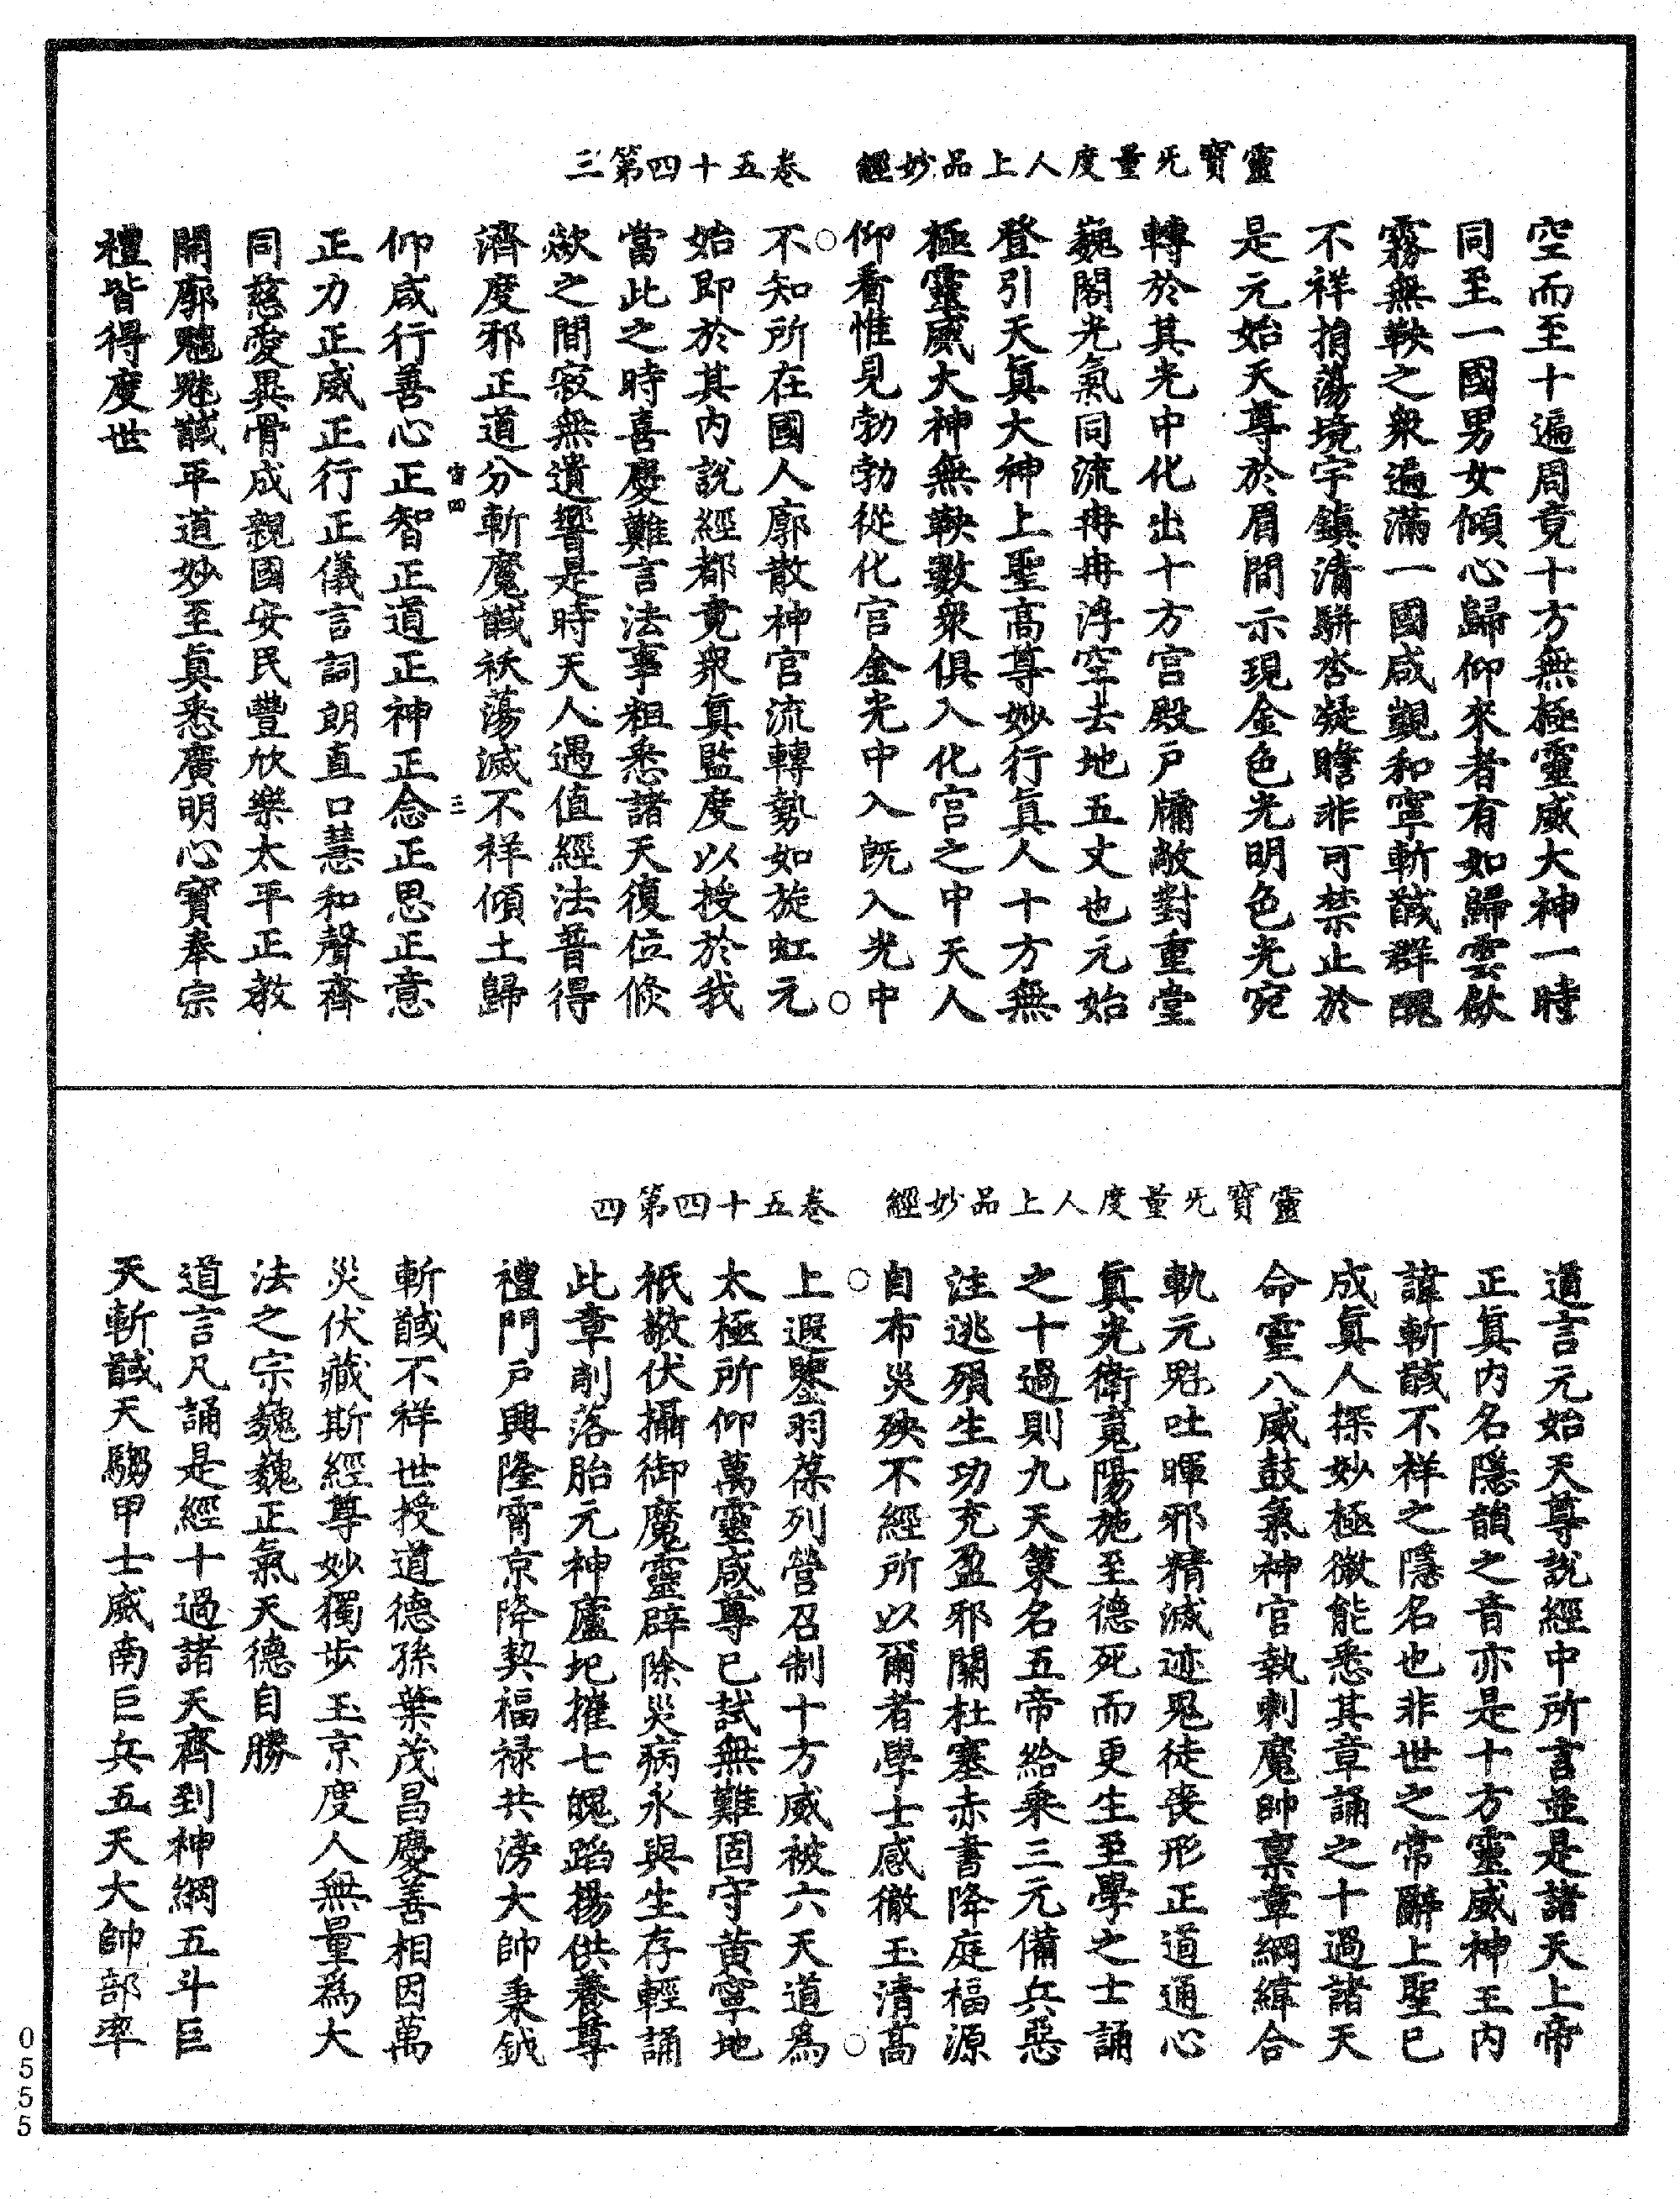 靈寶旡量度人上品妙經　卷五十四第三
空而至十遍周竟十方無極靈威大神一時
同至一國男女傾心歸仰來者有如歸雲歘
霧無鞅之衆遍滿一國咸覩和寧斬馘群醜
不祥捐蕩境宇鎮清駢杏凝瞻非可禁止於
是元始天尊於眉間示現金色光明色光宛
轉於其光中化出十方宫殿戸牖敞對重堂
巍閣光氣同流冉冉浮空去地五丈也元始
登引天真大神上聖高尊妙行真人十方無
極靈威大神無鞅數衆俱入化宫之中天人
仰看惟見勃勃從化官金光中入既入光中
不知所在國人廓散神官流轉勢如旋虹元
始即於其内說經都竟衆真監度以授於我
當此之時喜慶難言法事粗悉諸天復位倏
歘之間寂無遺響是時天人遇值經法普得
濟度邪正道分斬魔馘袄蕩滅不祥傾土歸
仰咸行善心正智正道正神正念正思正意
正力正威正行正儀言詞朗直口慧和聲齊
同慈愛異骨成親國安民豐欣樂太平正教
開廓魖魃馘平道妙至真悉廣明心寶奉宗
禮皆得度世
靈寶旡量度人上品妙經　卷五十四第四
道言元始天尊說經中所言並是諸天上帝
正真内名隱韻之音亦是十方靈威神王内
諱斬馘不祥之隱名也非世之常辭上聖已
成真人探妙極微能悉其章誦之十過諸天
命靈八威鼓氣神官執刺魔帥稟章綱緯合
軌元魁吐暉邪精滅迹鬼徒喪形正道通心
真光衛嵬陽施至德死而更生至學之士誦
之十過則九天策名五帝給乘三元備兵惡
注逃殞生功充盈邪關杜塞赤書降庭福源
自布災殃不經所以爾者學士感徹玉清高
上遐鑒羽葆列營召制十方威被六天道為
太極所仰萬靈咸尊已試無難固守黄寧地
祇敬伏攝御魔靈辟除災病永與生存輕誦
此章削落胎元神廬圮摧七魄蹈揚供養尊
禮門戸興隆霄京降契福禄共滂大帥秉鉞
斬馘不祥世授道德孫葉茂昌慶善相因萬
災伏藏斯經尊妙獨步玉京度人無量為大
法之宗巍巍正氣天德自勝
道言凡誦是經十過諸天齊到神綱五斗巨
天斬馘天騶甲士威南巨兵五天大帥部率
0555